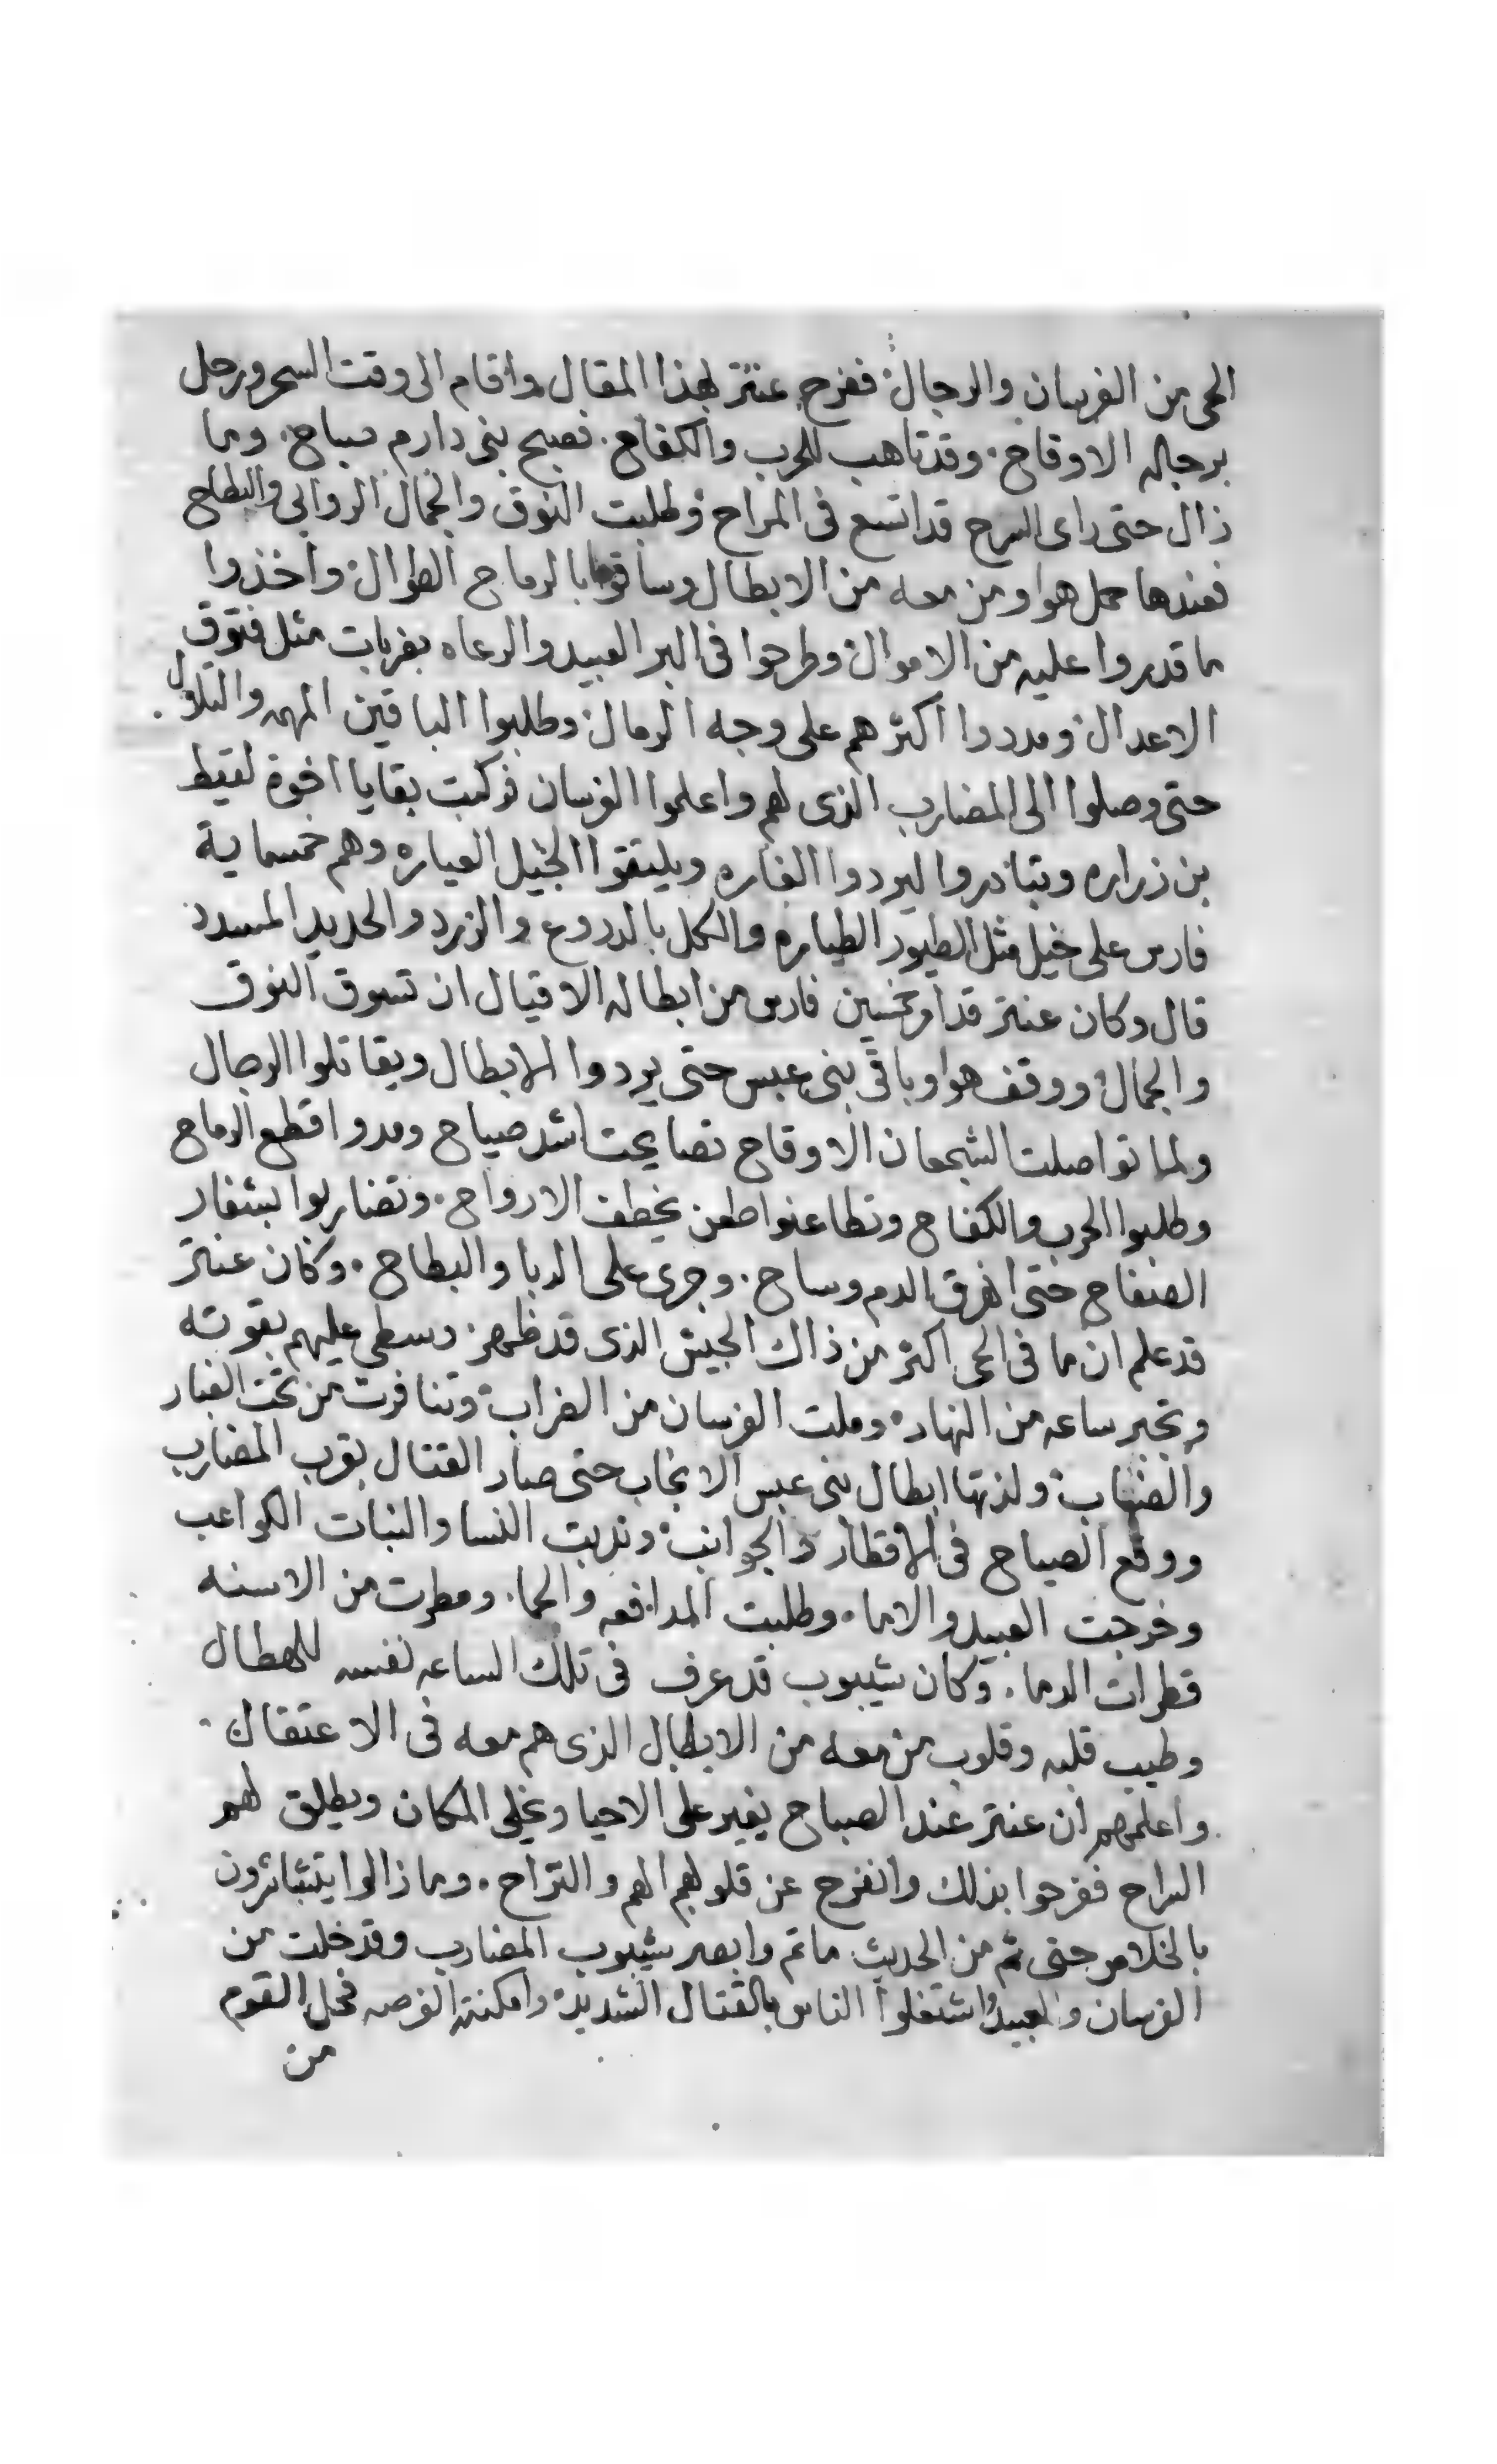 الحى من الفرسان والرجال؛ ففرح عنتر بهذا المقال واقام الى وقت السحر ورحل
برجاله الاوقاح. وقد تاهب للحرب والكفاح. فصبح بنى دارم صباح. وما
زال حتى راى السرح قد اتسع فى المراح؛ وطلبت النوق والجمال الروابى والبطاح
فعندها حمل هوا ومن معه من الابطال وساقوها بالرماح الطوال؛ واخذوا
ما قدروا عليه من الاموال؛ وطرحوا فى البر العبيد والرعاه بضربات مثل فتوق
الاعدال؛ ومددوا اكثرهم على وجه الرمال؛ وطلبوا الباقين المهمه والتلال.
حتى وصلوا الى المضارب الذى لهم واعلموا الفرسان فركبت بقايا اخوة لقيط
بن زراره وتبادروا ليردوا الغاره ويلتقوا الخيل العياره وهم خمسماية
فارس على خيل مثل الطيور الطياره والكل بالدروع والزرد والحديد المسدد
قال وكان عنتر قد امر خمسين فارس من ابطاله الاقيال ان تسوق النوق
والجمال؛ ووقف هوا وباقى بنى عبس حتى يردوا الابطال ويقاتلوا الرجال
ولما تواصلت الشجعان الاوقاح تصايحت اشد صياح ومدوا قطع الرماح
وطلبوا الحرب والكفاح وتطاعنوا طعن يخطف الارواح. وتضاربوا بشفار
الصفاح حتى اهرق الدم وساح. وجرى على الربا والبطاح. وكان عنتر
قد علم ان ما فى الحى اكثر من ذاك الجيش الذى قد ظهر. وسطى عليهم بقوته
وتجبر ساعه من النهار؛ وملت الفرسان من الضراب؛ وتنافرت من تحت الغبار
والضباب؛ ولزتها ابطال بنى عبس الانجاب حتى صار القتال بقرب المضارب
ووقع الصياح فى الاقطار والجوانب؛ وندبت النسا والبنات الكواعب
وخرجت العبيد والاما. وطلبت المدافعه والحما. ومطرت من الاسنه
قطرات الدما. وكان شيبوب قد عرف فى تلك الساعه نفسه للهطال
وطيب قلبه وقلوب من معه من الابطال الذى هم معه فى الاعتقال.
واعلمهم ان عنتر عند الصباح يغير على الاحيا ويخلى المكان ويطلق لهم
السراح ففرحوا بذلك وانفرج عن قلوبهم الهم والتراح. وما زالوا يتباشرون
بالخلاص حتى تم من الحديث ماتم وابصر شيبوب المضارب وقد خلت من
الفرسان والعبيد واشتغلوا الناس بالقتال الشديد؛ وامكنته الفرصه فحل القوم
من